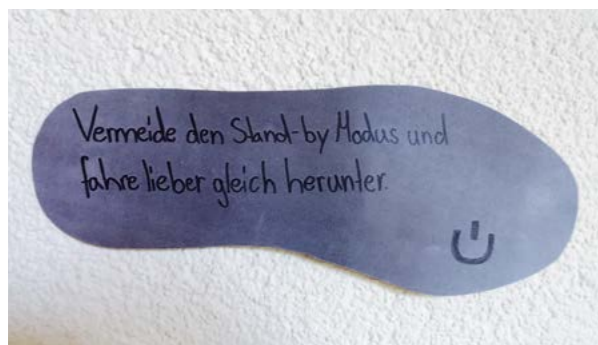 Vermeide den Stand-by Modus und
fahre lieber gleich herunter.